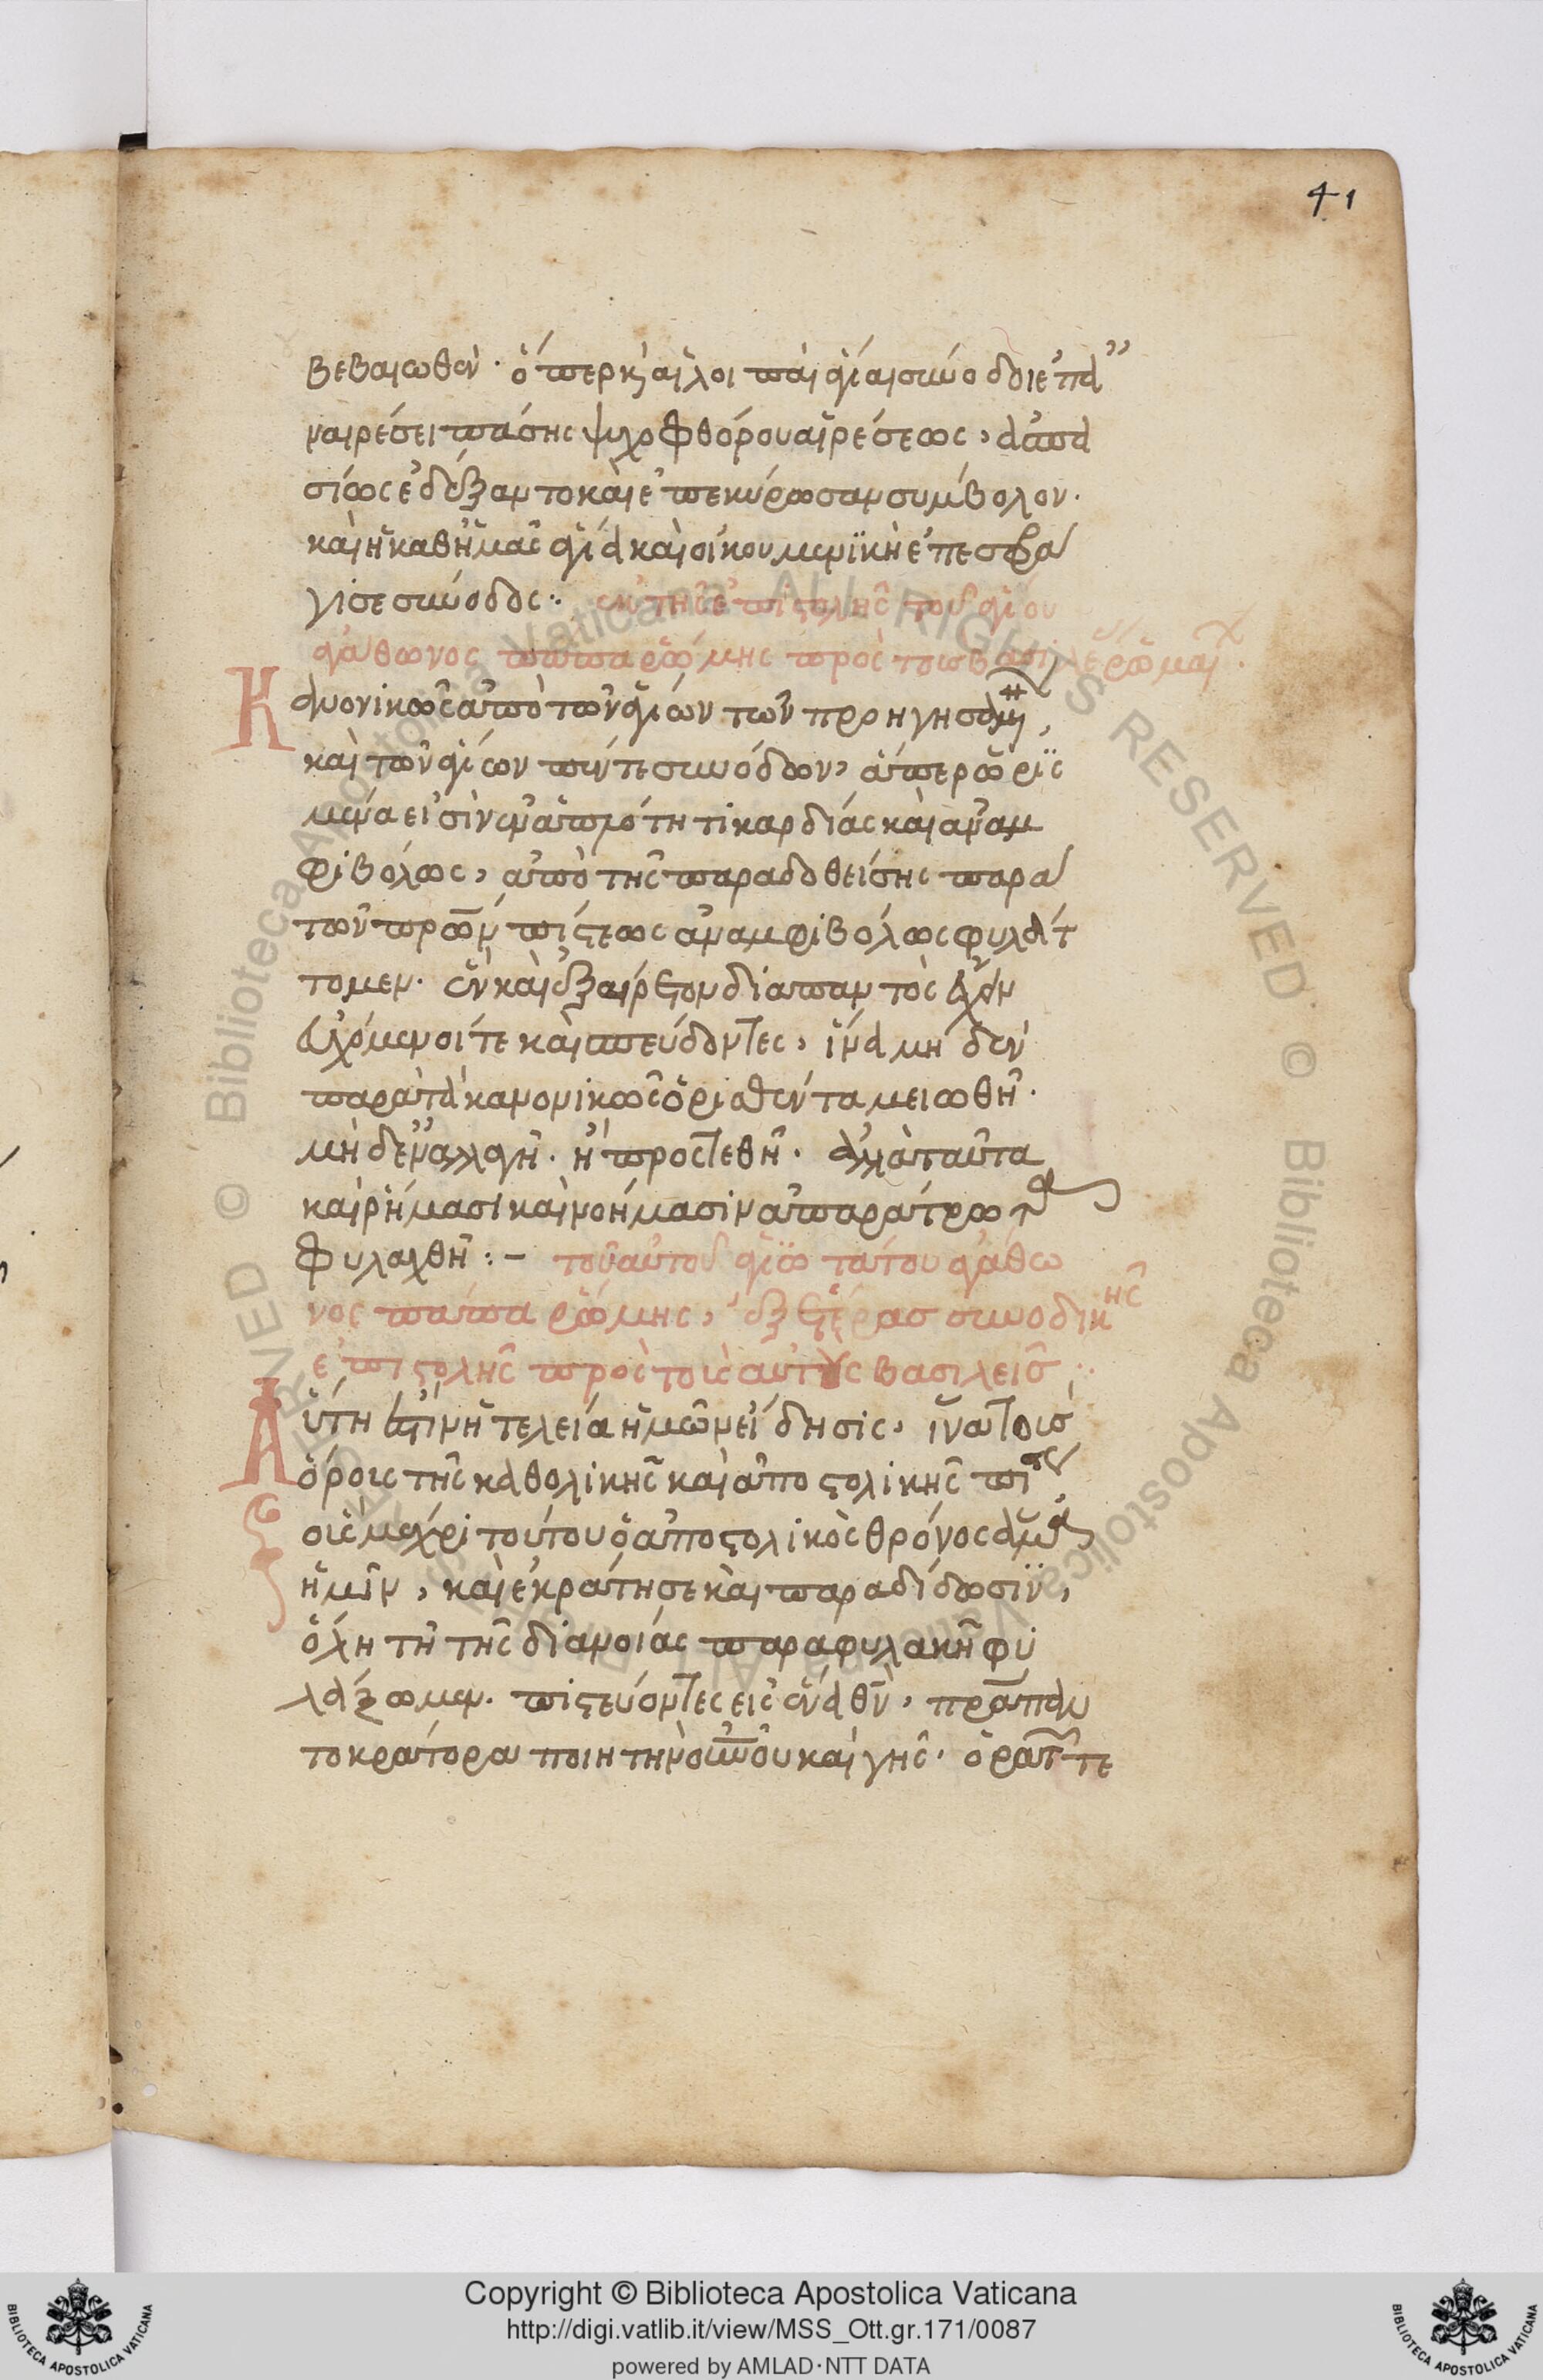 41
βεβαιωθέν· ὅπερ καὶ αἱ λοιπαὶ ἅγιαι σύνοδοι ἐπ' ἀ
ναιρέσει πάσης ψυχοφθόρου αἱρέσεως, ἀσπα
σίως ἐδέξαντο καὶ ἐπεκύρωσαν σύμβολον·
καὶ ἡ καθ' ἡμᾶς ἁγία καὶ οἰκουμενϊκὴ ἐπεσφρά
γισε σύνοδος: ἐκ τῆς ἐπιστολῆς τοῦ ἁγίου
ἀγάθωνος πάπα ῥώμης πρὸς τοὺς βασιλεῖς ῥωμαίων.
Κανονικῶς ἀπὸ τῶν ἁγίων τῶν προηγησαμένων,
καὶ τῶν ἁγίων πέντε συνόδων, ἅπερ ὡρισ
μένα εἰσὶν ἐν ἁπλότητι καρδίας καὶ ἀναμ
φιβόλως, ἀπὸ τῆς παραδοθείσης παρὰ
τῶν πρων πίστεως ἀναμφιβόλως φυλάτ
τομεν· ἓν καὶ ἐξαίρετον διαπαντὸς ἔχειν
εὐχόμενοί τε καὶ σπεύδοντες, ἵνα μηδὲν
παρὰ τὰ κανονικῶς ὁρισθέντα μειωθῇ·
μηδὲ ἐναλλαγῇ· ἢ προστεθῇ· ἀλλὰ ταῦτα
καὶ ῥήμασι καὶ νοήμασιν ἀπαράτρωτα
φυλαχθῇ:– τοῦ αὐτοῦ ἁγϊωτάτου ἀγάθω
νος πάπα ῥώμης, ἐξ ἑτέρας συνοδικῆς
ἐπιστολῆς πρὸς τοὺς αὐτοὺς βασιλεῖς:
Αὕτη ἐστὶν ἡ τελεία ἡμῶν εἴδησις, ἵνα τοὺσ
ὅρους τῆς καθολικῆς καὶ ἀποστολικῆς πίστεως
οὓς μέχρι τούτου ὁ ἀποστολικὸς θρόνος ἅμα
ἡμῖν, καὶ ἐκράτησε καὶ παραδίδωσϊν,
ὅλη τῇ τῆς διανοίας παραφυλακῇ φυ
λάξωμεν. πιστεύοντες εἰς ἕνα θν, πρα παν
τοκράτορα ποιητὴν οὐνου καὶ γῆς· ὁρατῶν τε
Copyright © Biblioteca Apostolica Vaticana
http://digi.vatlib.it/view/MSS_Ott.gr.171/0087
powered by AMLAD·NTT DATA